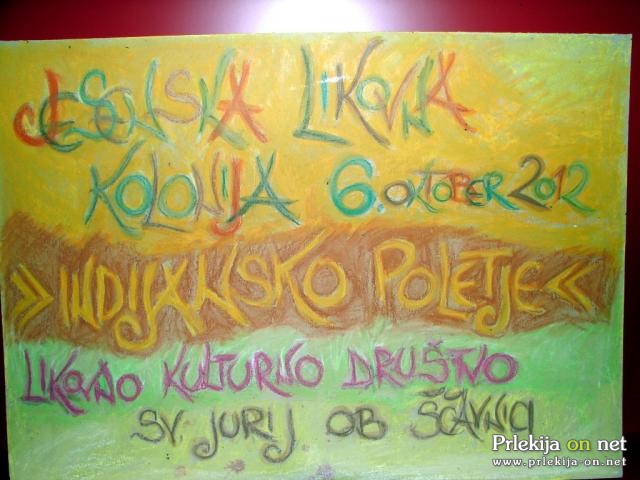 JESENSKA LIKOVNA
KOLONIJA 6. OKTOBER 2012
»INDIJANSKO POLETJE«
LIKOVNO KULTURNO DRUŠTVO
SV. JURIJ OB ŠČAVNICI
Prlekija on net
www.prlekija-on.net